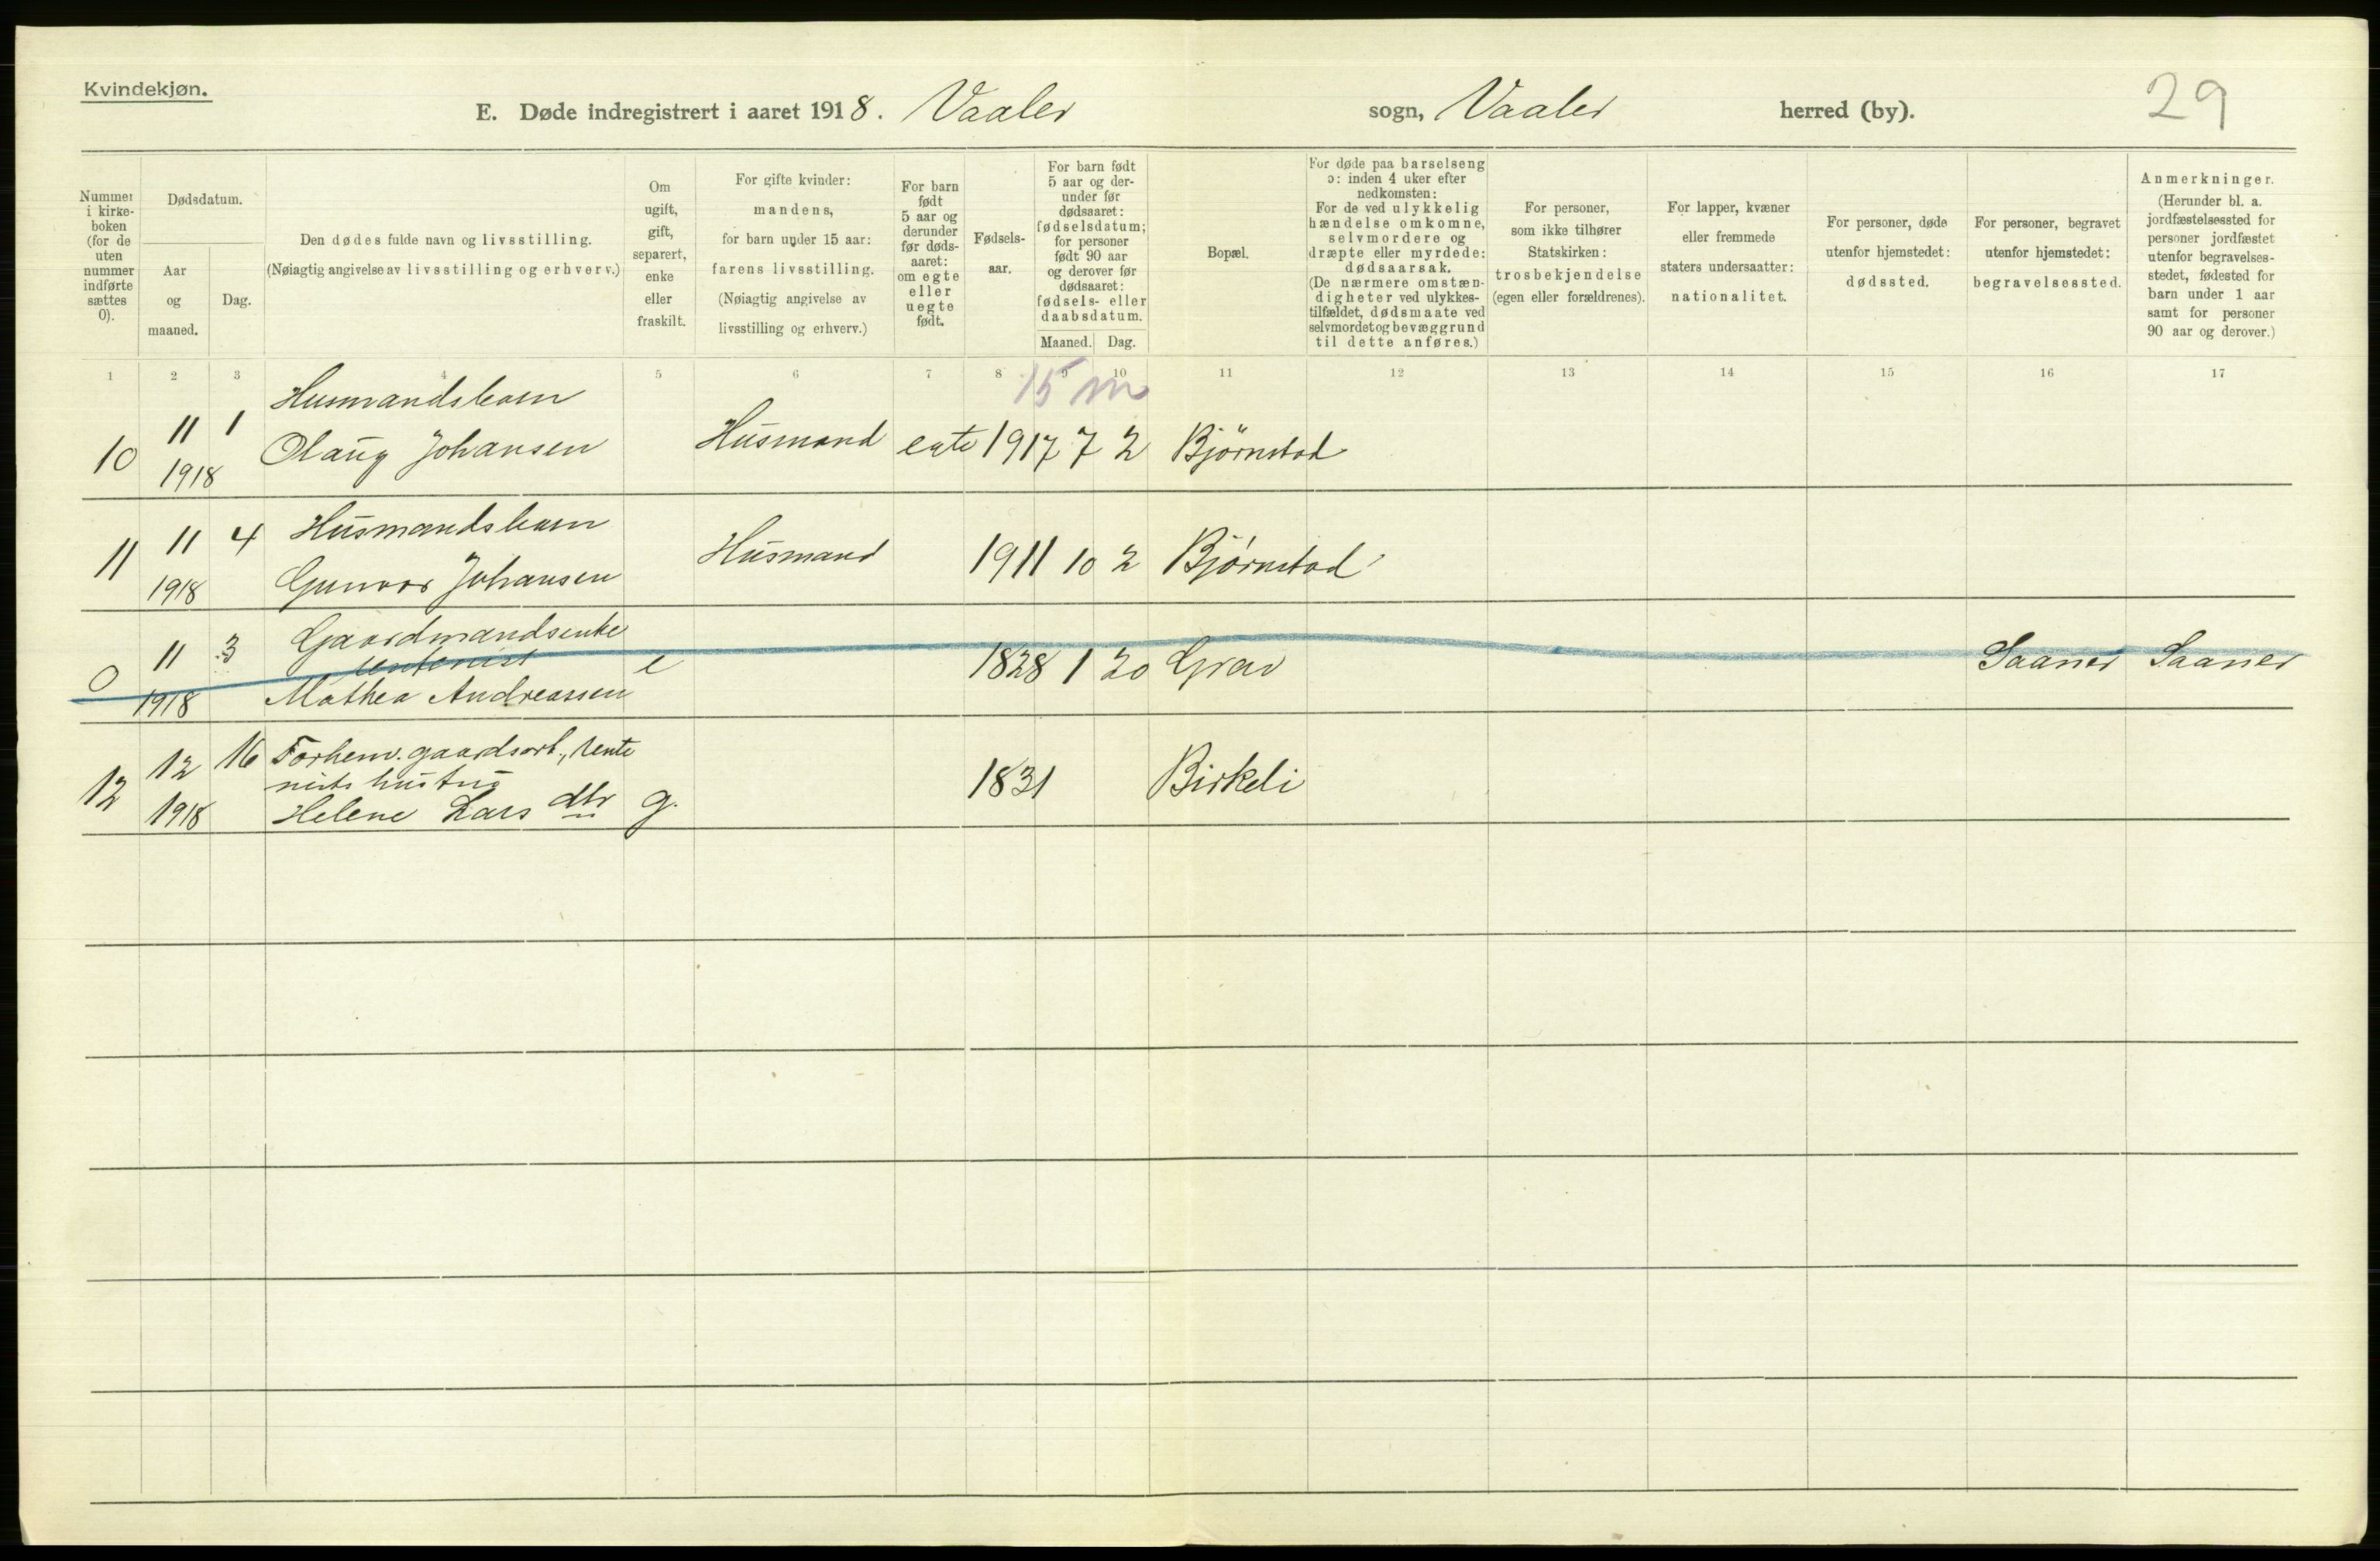 Kvindekjøn.
E. Døde indregistrert i aaret 1918. Vaaler sogn, Vaaler herred (by). 29
Nummer i kirkeboken (for de uten nummer indførte sættes 0).
Dødsdatum.
Aar og maaned.
Dag.
Den dødes fulde navn og livsstilling.
(Nøiagtig angivelse av livsstilling og erhverv.)
Om ugift, gift, separert, enke eller fraskilt.
For gifte kvinder: mandens, for barn under 15 aar: farens livsstilling. (Nøiagtig angivelse av livsstilling og erhverv.)
For barn født 5 aar og derunder før dødsaaret: om egte eller uegte født.
Fødselsaar.
For barn født 5 aar og derunder før dødsaaret: fødselsdatum; for personer født 90 aar og derover før dødsaaret: fødsels- eller daabsdatum.
Maaned. Dag.
Bopæl.
For døde paa barselseng ɔ: inden 4 uker efter nedkomsten: For de ved ulykkelig hændelse omkomne, selvmordere og dræpte eller myrdede: dødsaarsak. (De nærmere omstændigheter ved ulykkestilfældet, dødsmaate ved selvmordet og bevæggrund til dette anføres.)
For personer, som ikke tilhører Statskirken: trosbekjendelse (egen eller forældrenes).
For lapper, kvæner eller fremmede staters undersaatter: nationalitet.
For personer, døde utenfor hjemstedet: dødssted.
For personer, begravet utenfor hjemstedet: begravelsessted.
Anmerkninger. (Herunder bl. a. jordfæstelsessted for personer jordfæstet utenfor begravelsesstedet, fødested for barn under 1 aar samt for personer 90 aar og derover.)
1 2 3 4 5 6 7 8 9 10 11 12 13 14 15 16 17
15 m
Husmandsbarn
10 11 1 Olaug Johansen Husmand egte 1917 7 2 Bjørnstad
1918
11 11 4 Husmandsbarn Husmand 1911 10 2 Bjørnstad
1918 Gunvor Johansen
0 11 3 Gaardmandsenke
rentenist e 1828 1 20 Grav Saaner Saaner
1918 Mathea Andreassen
12 12 16 Forhenv. gaardsarb., rente
nists hustru 1831 Birkeli
1918 Helene Larsdtr g.